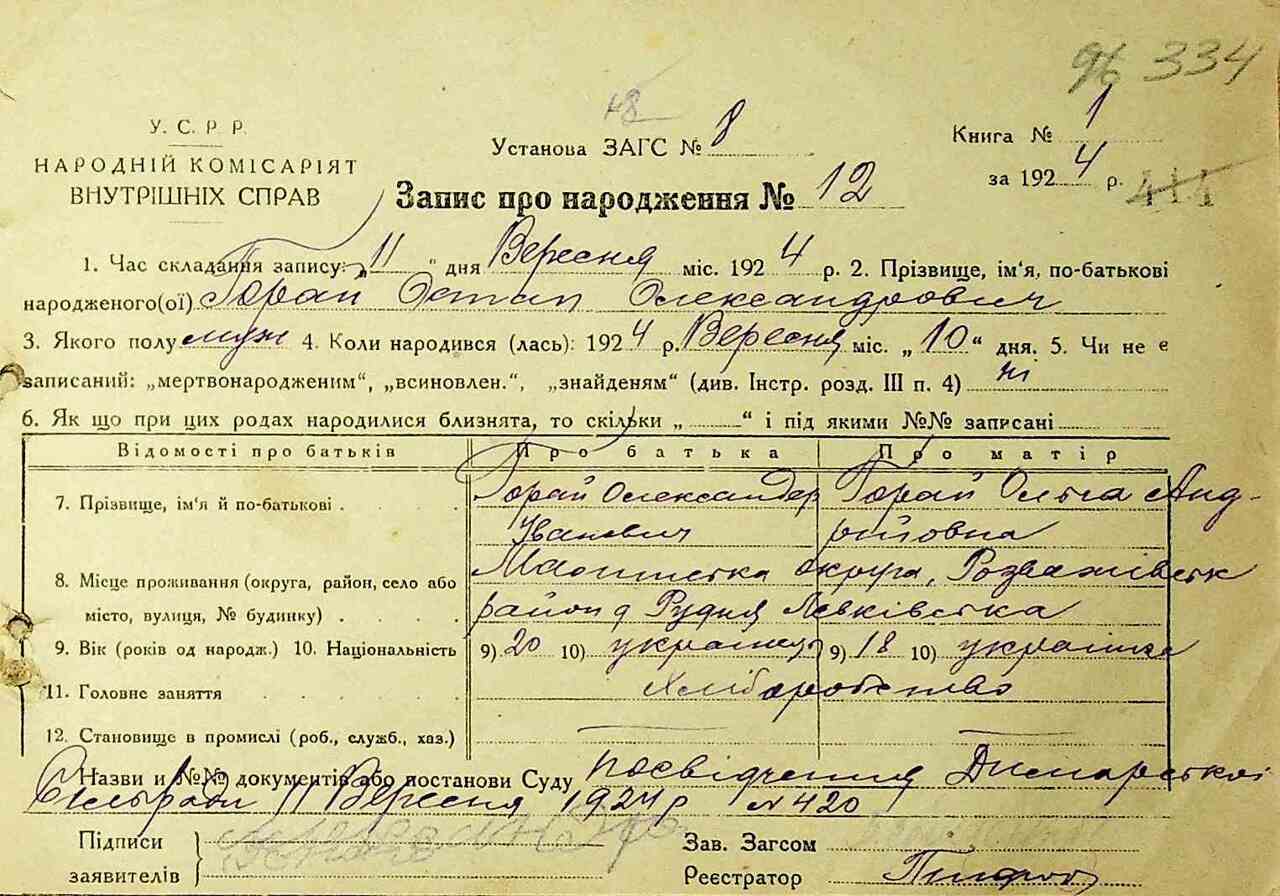 96 334
48
У. С. Р. Р.
НАРОДНІЙ КОМІСАРІЯТ
ВНУТРІШНІХ СПРАВ
Установа ЗАГС № 8
Книга № 1
за 1924 р.
444
Запис про народження № 12
1. Час складання запису: „11 “ дня Вересня міс. 1924 р. 2. Прізвище, ім'я, по-батькові
народженого(ої) Горай Остап Олександрович
3. Якого полу муж 4. Коли народився (лась): 1924 р. Вересня міс. „ 10 “ дня. 5. Чи не є
записаний: „мертвонародженим“, „всиновлен.“, „знайденям“ (див. Інстр. розд. III п. 4) ні
6. Як що при цих родах народилися близнята, то скільки „ “ і під якими №№ записані
Відомості про батьків Про батька Про матір
7. Прізвище, ім'я й по-батькові . . . . Горай Олександер Горай Ольга Анд-
Іванович рийовна
8. Місце проживання (округа, район, село або Малинська округа, Розважівськ
місто, вулиця, № будинку) . . . . район д Рудня Левківська
9. Вік (років од народж.) 10. Національність 9) 20 10) українець 9) 18 10) українка
11. Головне заняття . . . . Хліборобство
12. Становище в промислі (роб., служб., хаз.)
Назви и №№ документів або постанови Суду посвідчення Димарської
Сільради 11 Вересня 1924 р № 420
Підписи
заявителів
Зав. Загсом
Реєстратор